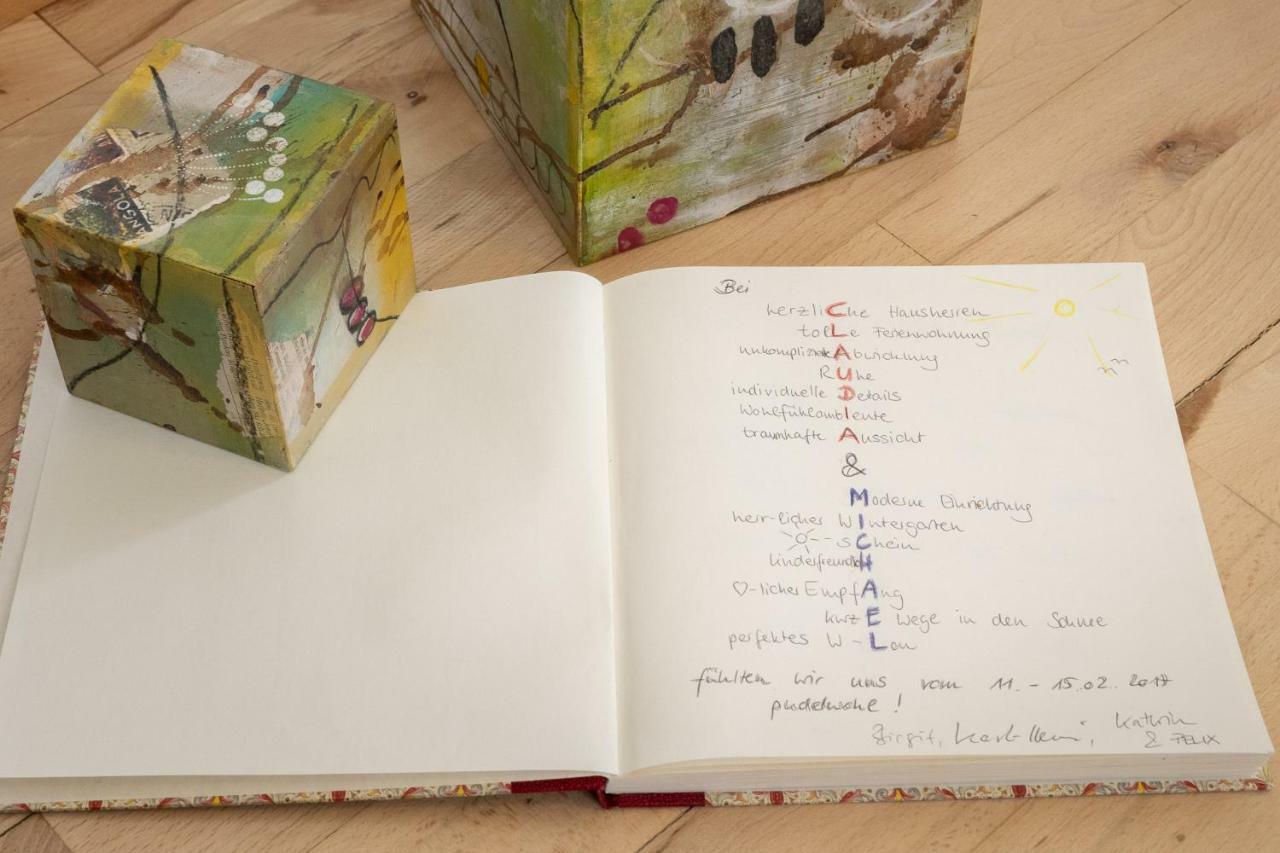 Bei
herzliChe Hausherren
toLLe Ferienwohnung
unkomplizierte Abwicklung
RUhe
individuelle Details
WohlfühlambIente
traumhafte Aussicht
&
Moderne Einrichtung
herr-licher WIntergarten
-sChein
kinderfreundlicH
♡-licher EmpfAng
kurzE Wege in den Schnee
perfektes W-Lan
fühlten wir uns vom 11. - 15.02. 2017
pudelwohl!
Birgit, Karl-Heinz, Kathrin
& FELIX